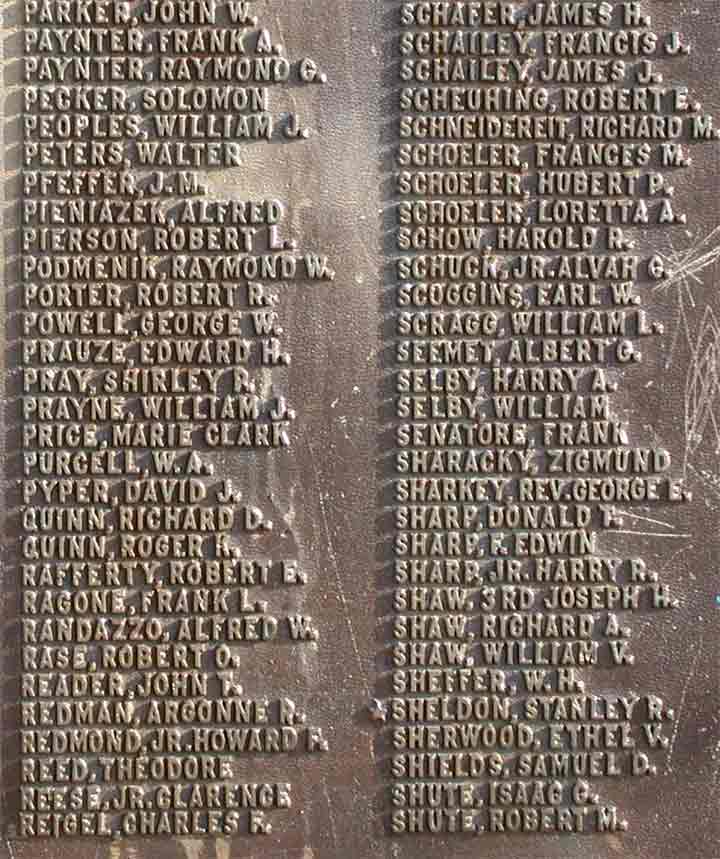 PARKER, JOHN W.
PAYNTER, FRANK A.
PAYNTER, RAYMOND G.
PECKER, SOLOMON
PEOPLES, WILLIAM J.
PETERS, WALTER
PFEFFER, J. M.
PIENIAZEK, ALFRED
PIERSON, ROBERT L.
PODMENIK, RAYMOND W.
PORTER, ROBERT R.
POWELL, GEORGE W.
PRAUZE, EDWARD H.
PRAY, SHIRLEY R.
PRAYNE, WILLIAM J.
PRICE, MARIE CLARK
PURCELL, W. A.
PYPER, DAVID J.
QUINN, RICHARD D.
QUINN, ROGER K.
RAFFERTY, ROBERT E.
RAGONE, FRANK L.
RANDAZZO, ALFRED W.
RASE, ROBERT O.
READER, JOHN T.
REDMAN, ARGONNE R.
REDMOND, JR. HOWARD F.
REED, THEODORE
REESE, JR. CLARENCE
REIGEL, CHARLES F.
SCHAFER, JAMES H.
SCHAILEY, FRANCIS J.
SCHAILEY, JAMES J.
SCHEUHING, ROBERT E.
SCHNEIDEREIT, RICHARD M.
SCHOELER, FRANCES M.
SCHOELER, HUBERT P.
SCHOELER, LORETTA A.
SCHOW, HAROLD R.
SCHUCK, JR. ALVAH G.
SCOGGINS, EARL W.
SCRAGG, WILLIAM L.
SEEMET, ALBERT G.
SELBY, HARRY A.
SELBY, WILLIAM
SENATORE, FRANK
SHARACKY, ZIGMUND
SHARKEY, REV. GEORGE E.
SHARP, DONALD T.
SHARP, F. EDWIN
SHARP, JR. HARRY R.
SHAW, 3RD JOSEPH H.
SHAW, RICHARD A.
SHAW, WILLIAM V.
SHEFFER, W. H.
★SHELDON, STANLEY R.
SHERWOOD, ETHEL V.
SHIELDS, SAMUEL D.
SHUTE, ISAAC C.
SHUTE, ROBERT M.